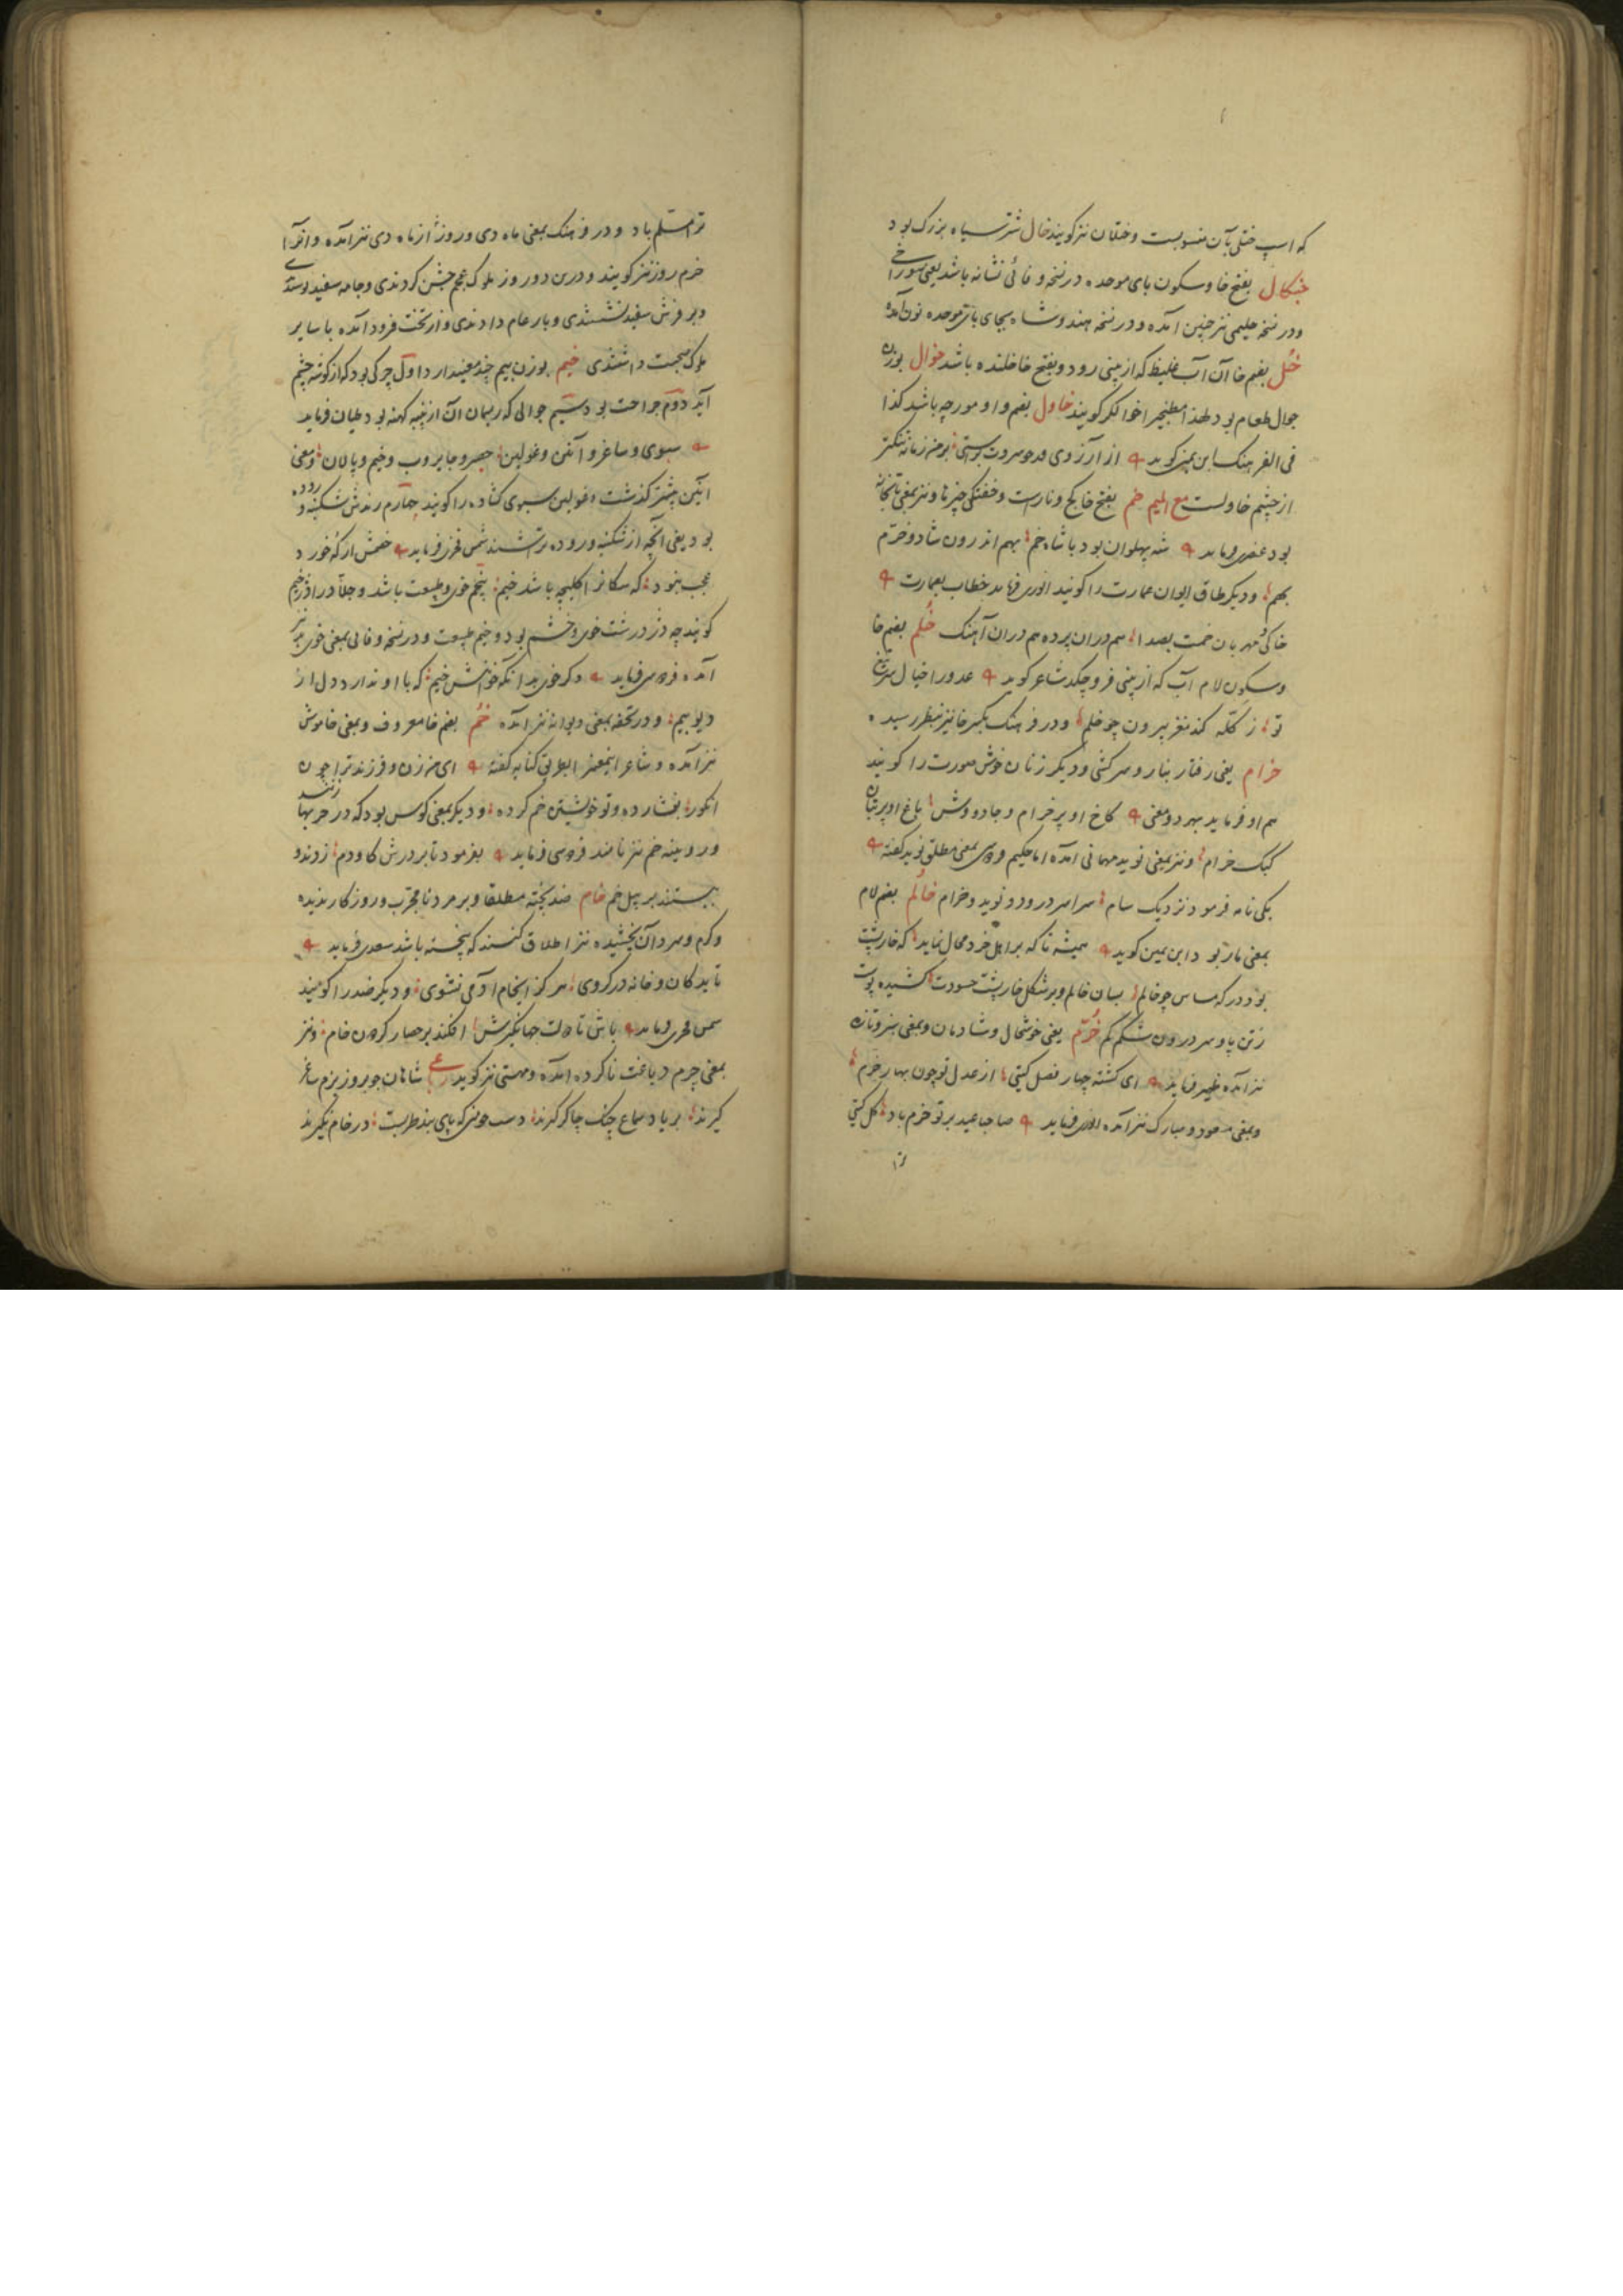 که اسپ ختلی بآن منسوبست و ختلان نیز کویند خال شتر سیاه بزرک بود
خبکال بفتح خا و سکون بای موحده در نسخه وفائی نشانه باشد یعنی سوراخ
و در نسخه حلیمی نیز چنین آمده و در نسخه هندوشاه بجای بای موحده نون آمده
خُل بضم خا آن آب غلیظ که از بینی رود و بفتح خا خلنده باشد خوال بوزن
جوال طعام بود لهذا مطبخی را خوالکر کویند خاول بضم واو مورچه باشد کذا
فی الفرهنک ابن یمین کوید از آرزوی بر من زمانه تنکتر
از چشم خاولست مع المیم خم بفتح خا کج و ناراست و خفتکی چیزها و نیز بمعنی تابخانه
بود عنصری فرماید شه پهلوان بود با شاه خم بهم اندرون شاد و خرم
بهم و دیکر طاق ایوان عمارت را کویند انوری فرماید خطاب بعمارت
خاکی مهربان خمت بصدا هم دران پرده هم دران آهنک خُلم بضم خا
و سکون لام آب که از بینی فرو چکد شاعر کوید عدو را خیال سر تیغ
تو ز کله کند مغز بیرون چو خلم و در فرهنک بکسر خا نیز بنظر رسیده
خرام یعنی رفتار بناز و سرکشی و دیکر زنان خوش صورت را کویند
هم او فرماید بهر دو معنی کاخ او پر خرام و جادو وش باغ او پر بتان
کبک خرام و نیز بمعنی نوید مهمانی آمده اما حکیم فردوسی بمعنی مطلق نوید کفته
یکی نامه فرمود نزدیک سام سراسر درود و نوید و خرام خالُم بضم لام
بمعنی مار بود ابن یمین کوید همیشه تا که بر اهل خرد محال نماید که خارپشت
بود در که مساس چو خالم بسان خالم و بر شکل خارپشت حسودت کشیده پوست
ز تن باد و سر درون شکم کم خُرّم یعنی خوشحال و شادمان و بمعنی سبز و تازه
نیز آمده ظهیر فرماید ای کشته چهار فصل کیتی از عدل تو چون بهار خرم
و بمعنی مسعود و مبارک نیز آمده انوری فرماید صاحبا عید بر تو خرم باد کل کیتی
ترا
ترا مسلم باد و در فرهنک بمعنی ماه دی و روز از ماه دی نیز آمده و آنرا
خرم روز نیز کویند و درین دو روز ملوک عجم جشن کردندی و جامه سفید پوشیدندی
و بر فرش سفید نشستندی و بار عام دادندی و از تخت فرود آمده با سایر
ملوک صحبت داشتندی خیم بوزن بیم چند معنی دارد اول چرکی بود که از کوشه چشم
آید دوم جراحت بود سیم جوالی که ریسمان آن از پنبه کهنه بود طیان فرماید
سبوی و ساغر و آنین و غولین حصیر و جایروب و خیم و پالان و معنی
آنین پیشتر کذشت و غولین سبوی کشاده را کویند چهارم رندش شکنبه و روده
بود یعنی آنچه از شکنبه و روده تراشند شمس فخری فرماید خصمش ار که خورد
عجب نبود که سکانرا کلیچه باشد خیم پنجم خوی و طبیعت باشد و جلاد را دژخیم
کویند چه دژ درشت خوی و خشم بود و خیم طبیعت و در نسخه وفائی بمعنی خوی بد نیز
آمده فردوسی فرماید دکر خوی بد آنکه خوانیش خیم که با او ندارد دل از
دیو بیم و در تحفه بمعنی دیوانه نیز آمده خُم بضم خا معروف و بمعنی خاموش
نیز آمده و شاعر اینمعنی را بطریق کنایه کفته ای من زن و فرزند ترا چون
انکور بفشارده و تو خویشتن خم کرده و دیکر بمعنی کوس بود که در حربها زنند
و رویینه خم نیز نامند فردوسی فرماید بفرمود تا بر درش کاودم زدند و
ببستند بر پیل خم خام ضد پخته مطلقا و بر مرد نامجرب و روزکار ندیده
و کرم و سرد آن نچشیده نیز اطلاق کنند که پخته باشد سعدی فرماید
تا بدکان و خانه در کروی هرکز ای خام آدمی نشوی و دیکر کمند را کویند
شمس فخری فرماید باش تا دولت جهانکیرش افکند بر حصار کردون خام و نیز
بمعنی چرم دباغت ناکرده آمده و مهستی نیز کوید رباعی شاهان چو بروز بزم ساغر
کیرند بر یاد سماع چنک چاکر کیرند دست چو منی که پای بند طربست در خام نکیرند